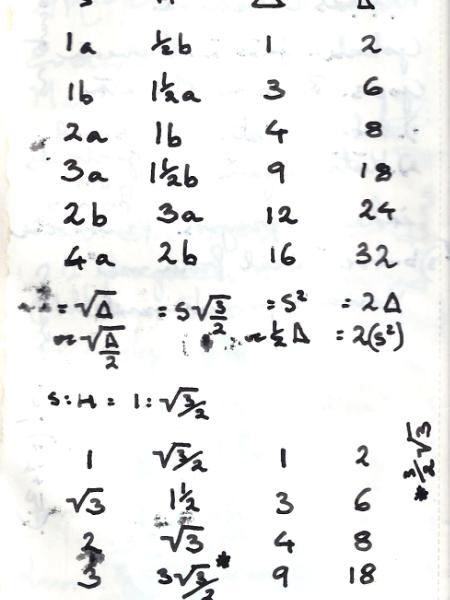 S H △ △
1a ½b 1 2
1b 1½a 3 6
2a 1b 4 8
3a 1½b 9 18
2b 3a 12 24
4a 2b 16 32
= √△ = S√3/2 = S² = 2△
or √△/2 or ½△ = 2(S²)
S:H = 1:√3/2
1 √3/2 1 2
√3 1½ 3 6
2 √3 4 8
3 3√3/2* 9 18
*3/2√3